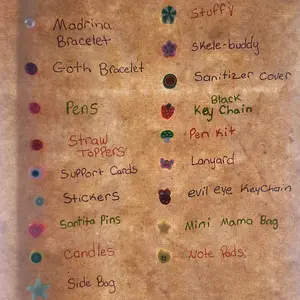 Madrina
Bracelet
Goth Bracelet
Pens
Straw
Toppers
Support Cards
Stickers
Santita Pins
Candles
Side Bag
Stuffy
Skele-buddy
Sanitizer Cover
Black
Key Chain
Pen Kit
Lanyard
evil eye KeyChain
Mini Mama Bag
Note Pads